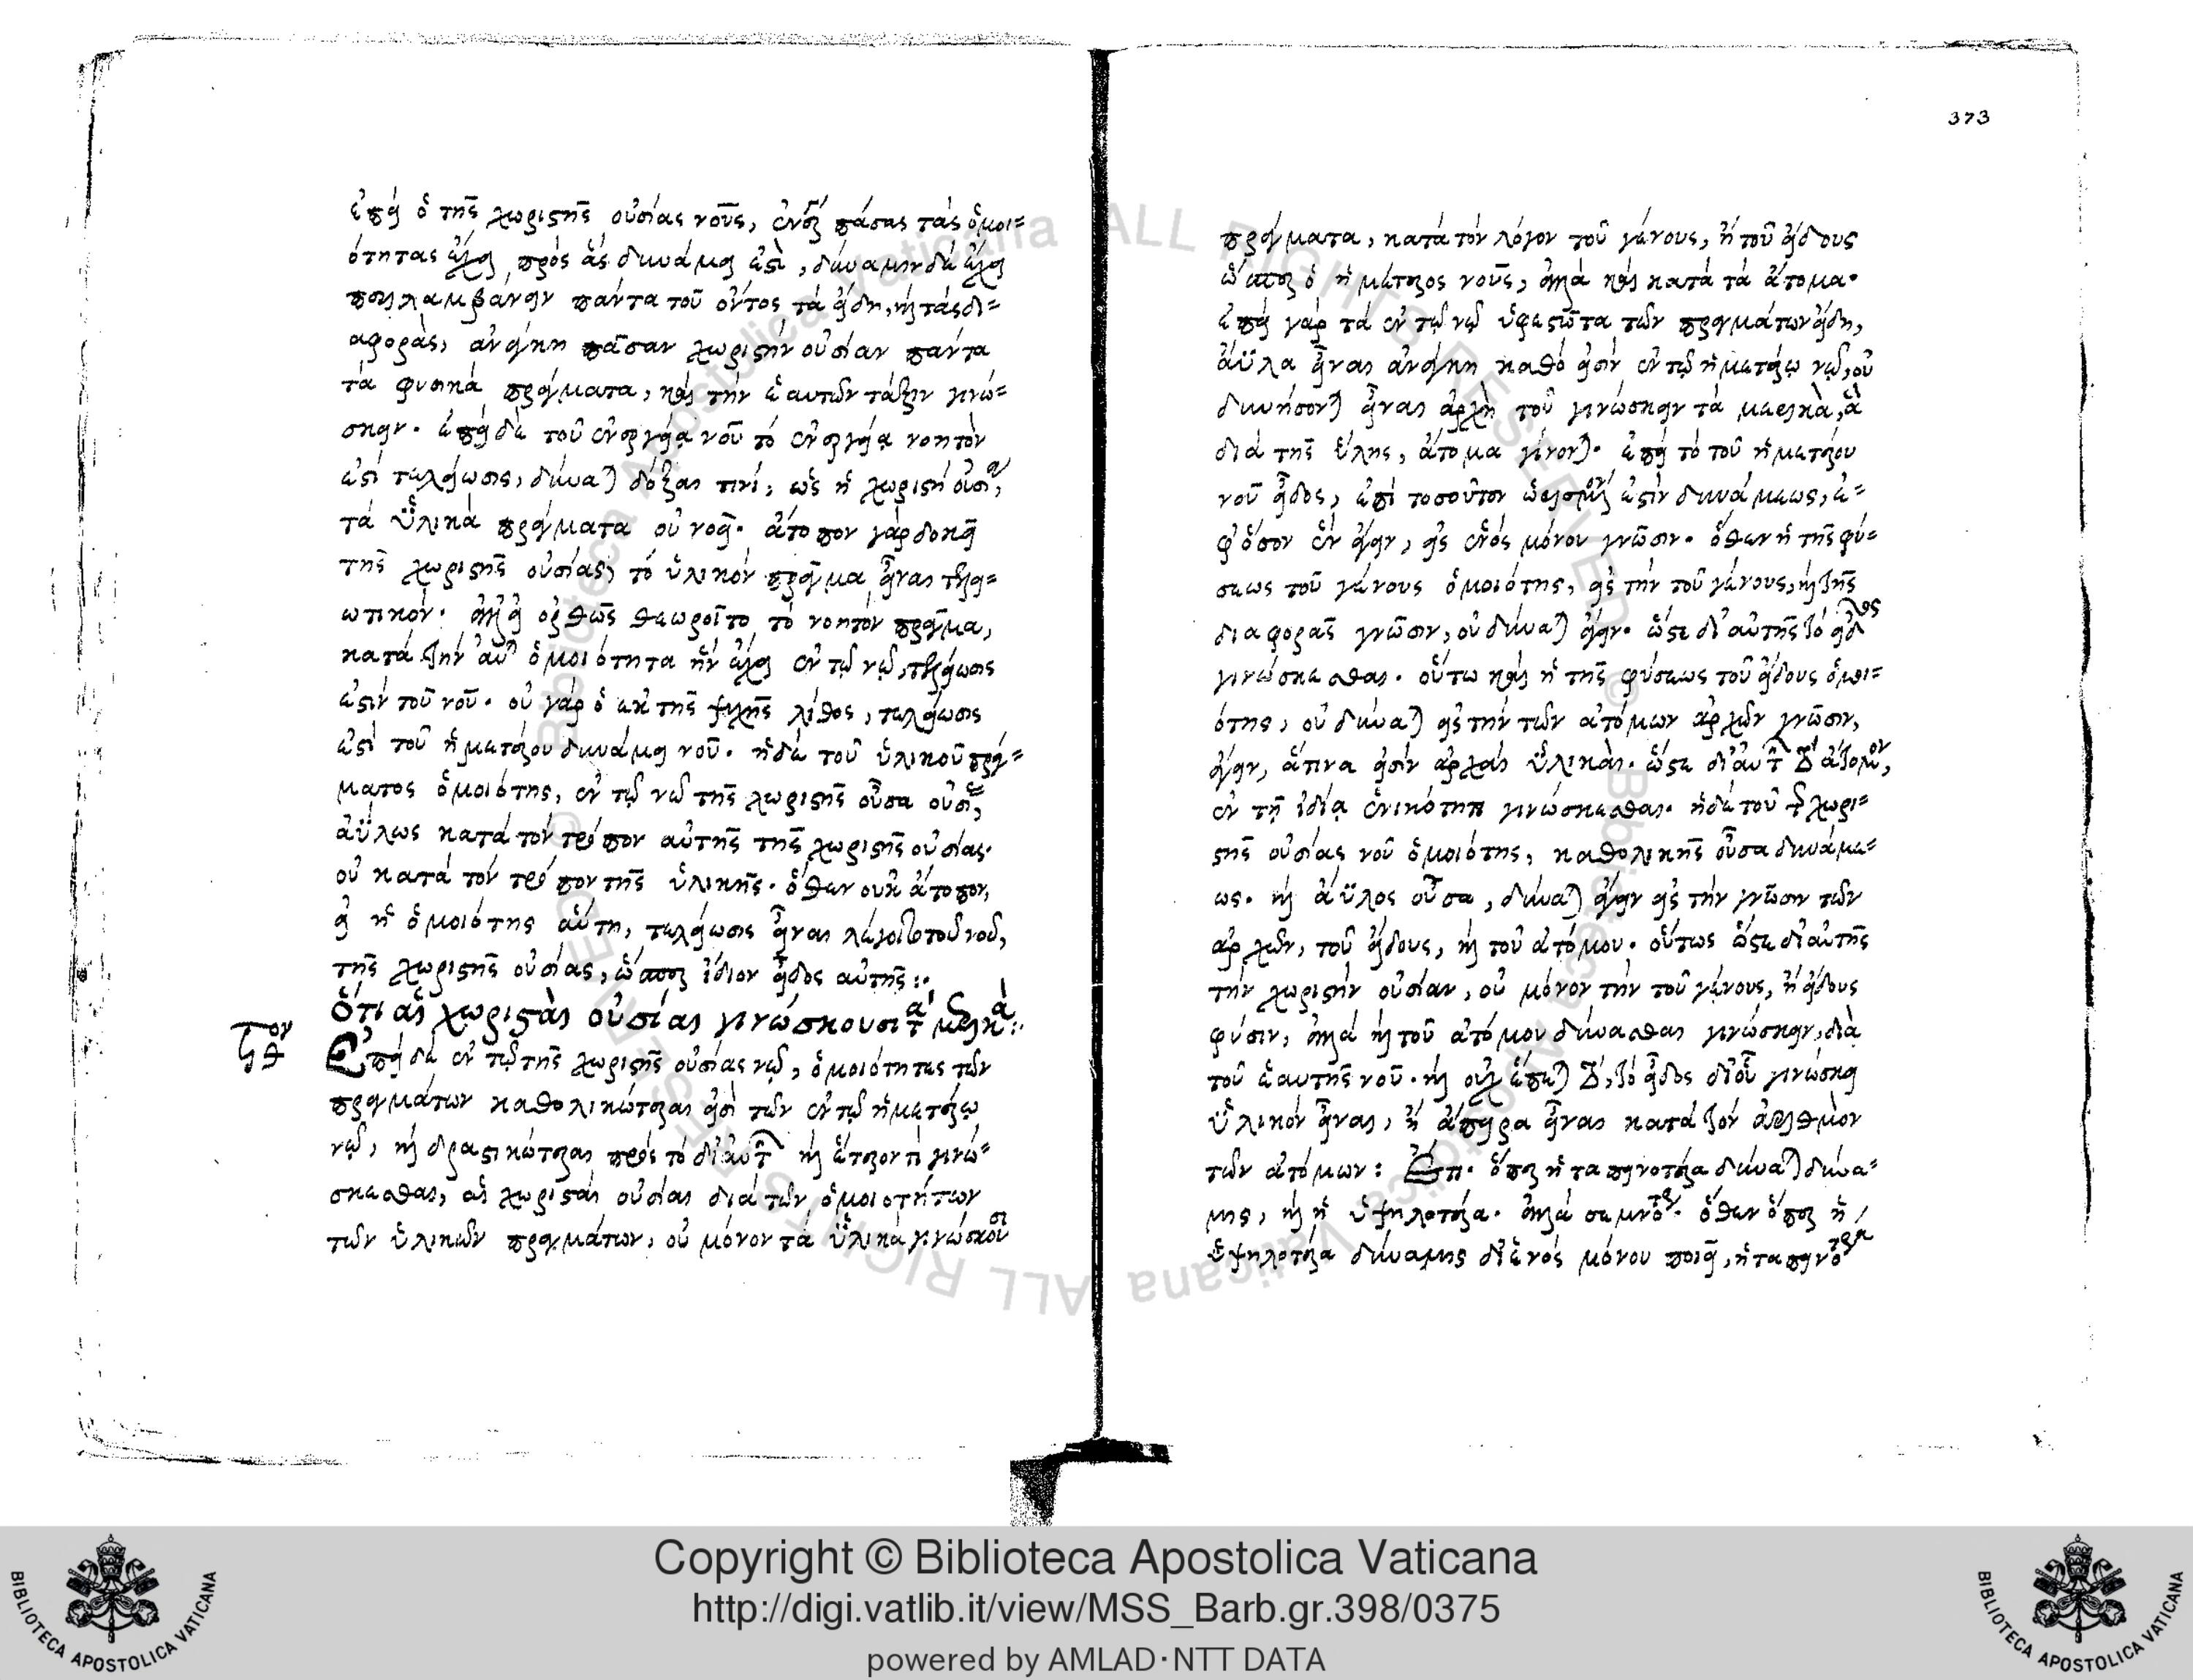 ἐπεὶ ὁ τῆς χωριστῆς οὐσίας νοῦς, πάσας τὰς ὁμοι=
ότητας ἔχει πρὸς ἃς δυνάμει ἐστὶ, δύναμιν δὲ ἔχει
περιλαμβάνειν πάντα τοῦ ὄντος τὰ εἴδη, καὶ τὰς δι=
αφορὰς, ἀνάγκη πᾶσαν χωριστὴν οὐσίαν πάντα
τὰ φυσικὰ πράγματα, καὶ τὴν ἑαυτῶν τάξιν γινώ=
σκειν. ἐπεὶ δὲ τοῦ ἐνεργείᾳ νοῦ τὸ ἐνεργείᾳ νοητὸν
ἐστὶ τελείωσις, δύναται δόξαι τινί, ὡς ἡ χωριστὴ οὐσία,
τὰ ὑλικὰ πράγματα οὐ νοεῖ. ἄτοπον γὰρ δοκεῖ
τῆς χωριστῆς οὐσίας, τὸ ὑλικὸν πρᾶγμα εἶναι τελει=
ωτικόν. ἀλλ' εἰ ὀρθῶς θεωροῖτο τὸ νοητὸν πρᾶγμα,
κατὰ τὴν αὐτοῦ ὁμοιότητα ἣν ἔχει ἐν τῷ νῷ, τελείωσις
ἐστὶν τοῦ νοῦ. οὐ γὰρ ὁ ἐκ τῆς ψυχῆς λίθος, τελείωσις
ἐστὶ τοῦ ἡμετέρου δυνάμει νοῦ. ἡ δὲ τοῦ ὑλικοῦ πράγ=
ματος ὁμοιότης, ἐν τῷ νῷ τῆς χωριστῆς οὖσα οὐσίας,
ἀΰλως κατὰ τὸν τρόπον αὐτῆς τῆς χωριστῆς οὐσίας.
οὐ κατὰ τὸν τρόπον τῆς ὑλικῆς. ὅθεν οὐκ ἄτοπον,
εἰ ἡ ὁμοιότης αὕτη, τελείωσις εἶναι λέγοιτο τοῦ νοῦ,
τῆς χωριστῆς οὐσίας, ὥσπερ ἴδιον εἶδος αὐτῆς:.
Ὅτι αἱ χωρισταὶ οὐσίαι γινώσκουσι τὰ μερικά:.
Ἐπεὶ δὲ ἐν τῷ τῆς χωριστῆς οὐσίας νῷ, ὁμοιότητες τῶν
πραγμάτων καθολικώτεραι εἰσὶ τῶν ἐν τῷ ἡμετέρῳ
νῷ, καὶ δραστικώτεραι πρὸς τὸ δι' αὐτῶν καὶ ἕτερόν τι γινώ=
σκεσθαι, αἱ χωρισταὶ οὐσίαι διὰ τῶν ὁμοιοτήτων
τῶν ὑλικῶν πραγμάτων, οὐ μόνον τὰ ὑλικὰ γινώσκουσι
373
πράγματα, κατὰ τὸν λόγον τοῦ γένους, ἢ τοῦ εἴδους
ὥσπερ ὁ ἡμέτερος νοῦς, ἀλλὰ καὶ κατὰ τὰ ἄτομα.
ἐπεὶ γὰρ τὰ ἐν τῷ νῷ ὑφεστῶτα τῶν πραγμάτων εἴδη,
ἄϋλα εἶναι ἀνάγκη καθό εἰσιν ἐν τῷ ἡμετέρῳ νῷ, οὐ
δυνήσονται εἶναι ἀρχὴ τοῦ γινώσκειν τὰ μερικὰ, ἃ
διὰ τῆς ὕλης, ἄτομα γίνονται. ἐπεὶ τὸ τοῦ ἡμετέρου
νοῦ εἶδος, ἐπὶ τοσοῦτον ὡρισμένης ἐστὶν δυνάμεως, ἐ=
φ' ὅσον ἓν ἄγειν, εἰς ἑνός μόνου γνῶσιν. ὅθεν ἡ τῆς φύ=
σεως τοῦ γένους ὁμοιότης, εἰς τὴν τοῦ γένους, καὶ τῆς
διαφορᾶς γνῶσιν, οὐ δύναται ἄγειν. ὥστε δι' αὐτῆς τὸ εἶδος
γινώσκεσθαι. οὕτω καὶ ἡ τῆς φύσεως τοῦ εἴδους ὁμοι=
ότης, οὐ δύναται εἰς τὴν τῶν ἀτόμων ἀρχῶν γνῶσιν,
ἄγειν, ἅτινα εἰσὶν ἀρχαὶ ὑλικαί. ὥστε δι' αὐτῆς τὸ ἄτομον,
ἐν τῇ ἰδίᾳ ἑνικότητι γινώσκεσθαι. ἡ δὲ τοῦ τῆς χωρι=
στῆς οὐσίας νοῦ ὁμοιότης, καθολικῆς οὖσα δυνάμε=
ως. καὶ ἄϋλος οὖσα, δύναται ἄγειν εἰς τὴν γνῶσιν τῶν
ἀρχῶν, τοῦ εἴδους, καὶ τοῦ ἀτόμου. οὕτως ὥστε δι' αὐτῆς
τὴν χωριστὴν οὐσίαν, οὐ μόνον τὴν τοῦ γένους, ἢ εἴδους
φύσιν, ἀλλὰ καὶ τοῦ ἀτόμου δύνασθαι γινώσκειν, διὰ
τοῦ ἑαυτῆς νοῦ. καὶ οὐχ ἕπεται τὸ εἶδος δι' οὗ γινώσκει
ὑλικὸν εἶναι, ἢ ἄπειρα εἶναι κατὰ τὸν ἀριθμὸν
τῶν ἀτόμων: Ἔτι. ὅπερ ἡ ταπεινοτέρα δύναται δύνα=
μις, καὶ ἡ ὑψηλοτέρα. ἀλλὰ σεμνότερον. ὅθεν ὅπερ ἡ
ὑψηλοτέρα δύναμις δι' ἑνός μόνου ποιεῖ, ἡ ταπεινοτέρα
Copyright © Biblioteca Apostolica Vaticana
http://digi.vatlib.it/view/MSS_Barb.gr.398/0375
powered by AMLAD·NTT DATA
BIBLIOTECA APOSTOLICA VATICANA
BIBLIOTECA APOSTOLICA VATICANA